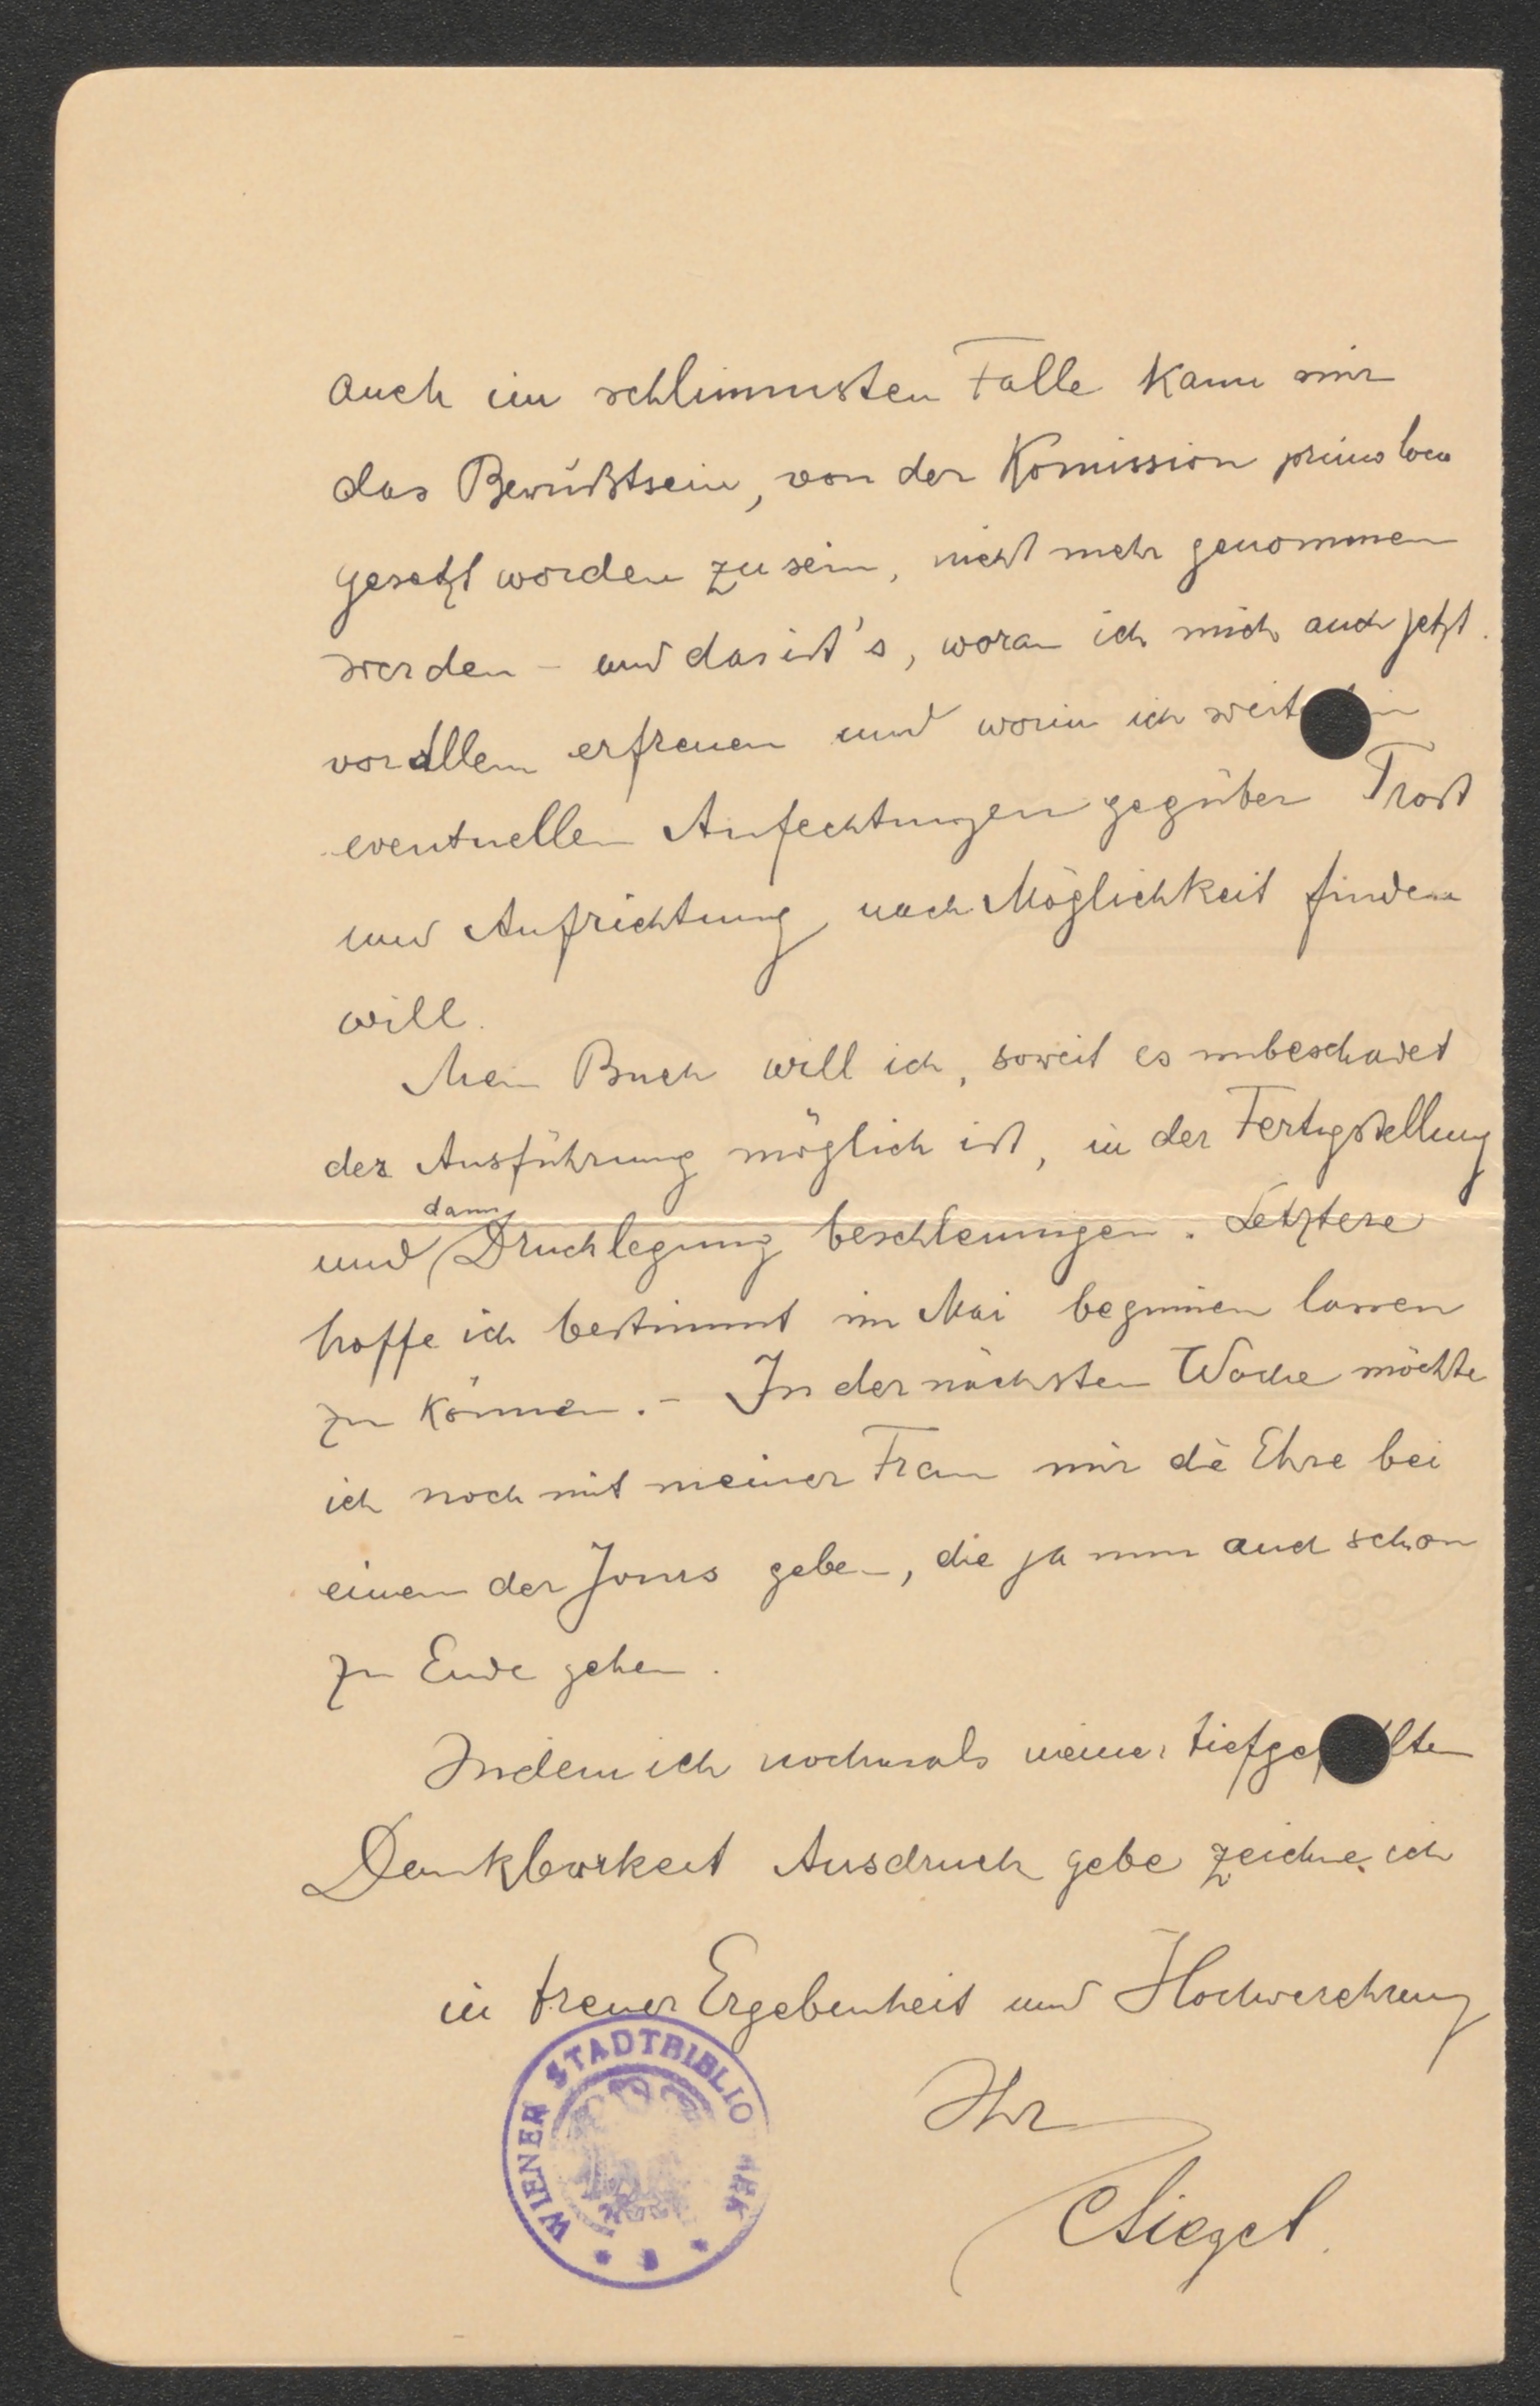 auch im schlimmsten Falle kann mir
das Bewußtsein, von der Komission primo loco
gesetzt worden zu sein, nicht mehr genommen
werden – und das ist's, woran ich mich auch jetzt
vor allem erfreuen und worin ich weit in
eventuellen Anfechtungen gegüber Trost
und Aufrichtung nach Möglichkeit finden
will.
Mein Buch will ich, soweit es unbeschadet
der Ausführung möglich ist, in der Fertigstellung
dann
und Drucklegung beschleunigen. Letztere
hoffe ich bestimmt im Mai beginnen lassen
zu können. – In der nächsten Woche möchte
ich noch mit meiner Frau mir die Ehre bei
einem der Jours geben, die ja nun auch schon
zu Ende gehen.
Indem ich nochmals meiner tiefge lten
Dankbarkeit Ausdruck gebe zeichne ich
in treuer Ergebenheit und Hochverehrung
Ihr
CSiegel.
WIENER STADTBIBLIO HEK